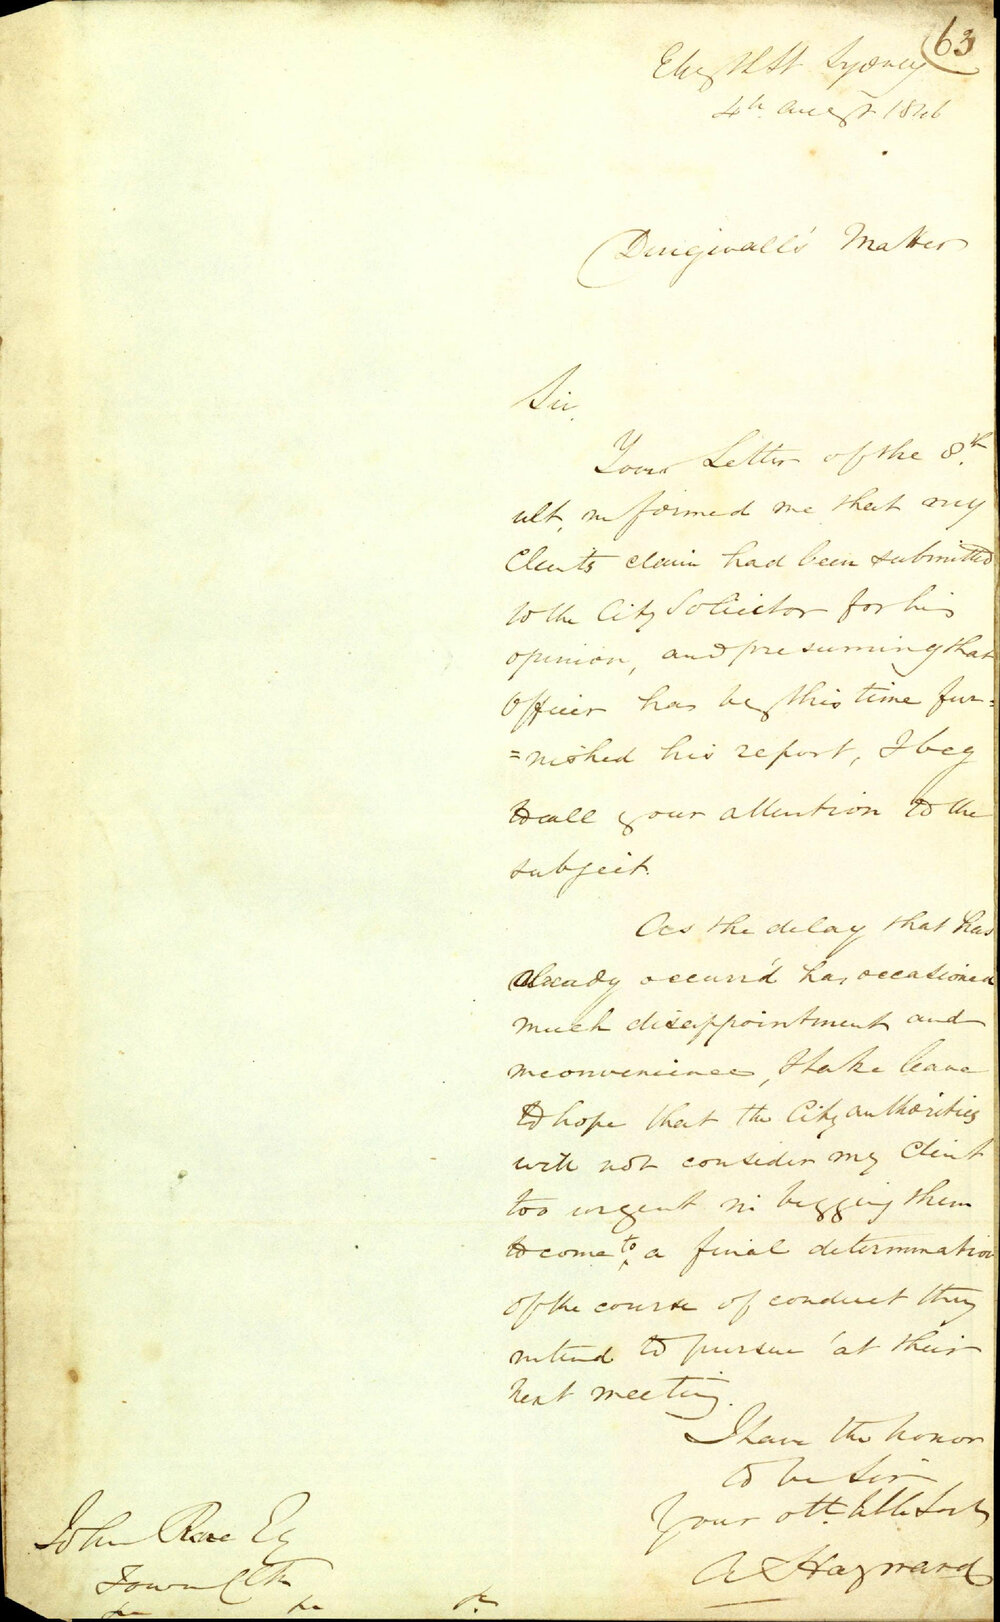 63
Elizth St Sydney
4th August 1846
Dingwall's Matter
Sir,
Your Letter of the 8th
ult. informed me that my
Clients claim had been submitted
to the City Solicitor for his
opinion, and presuming that
Officer has by this time fur=
=nished his report, I beg
to call your attention to the
subject.
As the delay that has
already occurr'd has occasioned
much disappointment and
inconvenience, I take leave
to hope that the City authorities
will not consider my Client
too urgent in begging them
to come to a final determination
of the course of conduct they
intend to pursue at their
next meeting.
I have the honor
to be Sir
Your obt. hble Servt
A Hayward
John Rae Eq
Town Clk